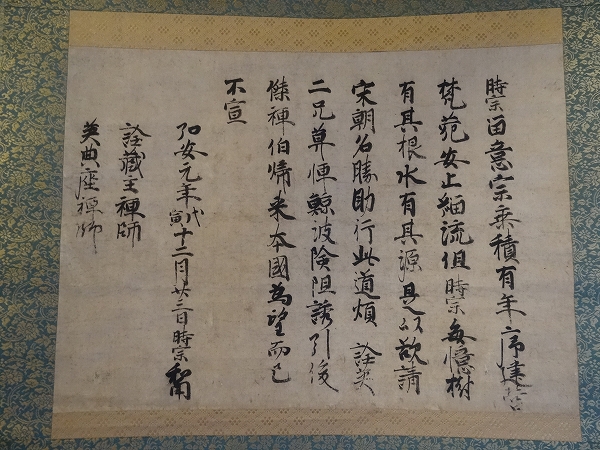 時宗留意宗乗積有年序建營
梵苑安止緇流但時宗每憶樹
有其根水有其源是以欲請
宋朝名勝助行此道煩詮英
二兄莫憚鯨波險阻誘引俊
傑禅伯帰来本國為望而已
不宣
弘安元年戊寅十二月廿三日時宗和南
詮蔵主禅師
英典座禅師